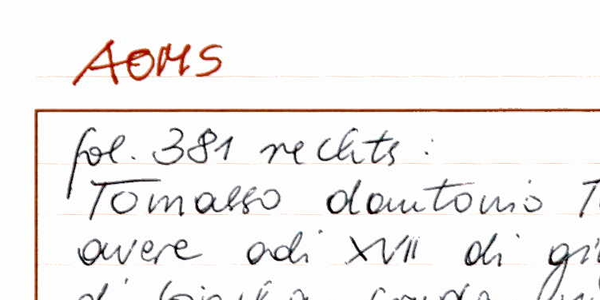 AOMS
fol. 381 rechts :
Tomasso dantonio
avere adi XVII di
di